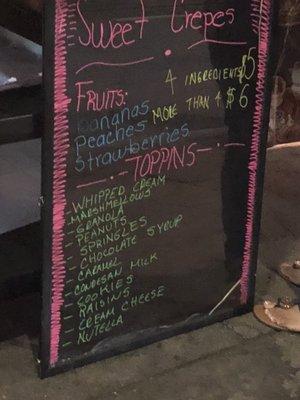 Sweet Crepes
4 INGREDIENTS $5
FRUITS:
MORE THAN 4 $6
Bananas
Peaches
Strawberries
TOPPINS
- WHIPPED CREAM
- MARSHMELLOWS
- GRANOLA
- PEANUTS
- SPRINGLES
- CHOCOLATE SYRUP
- CARAMEL
- CONDESAN MILK
- COOKIES
- RAISINS
- CREAM CHEESE
- NUTELLA